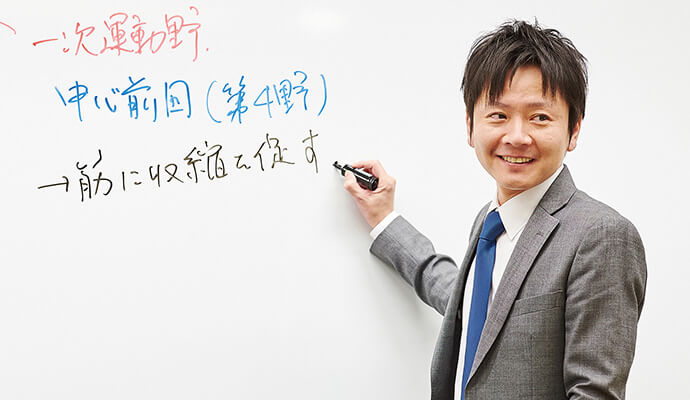 一次運動野.
中心前回(第4野)
→筋に収縮を促す